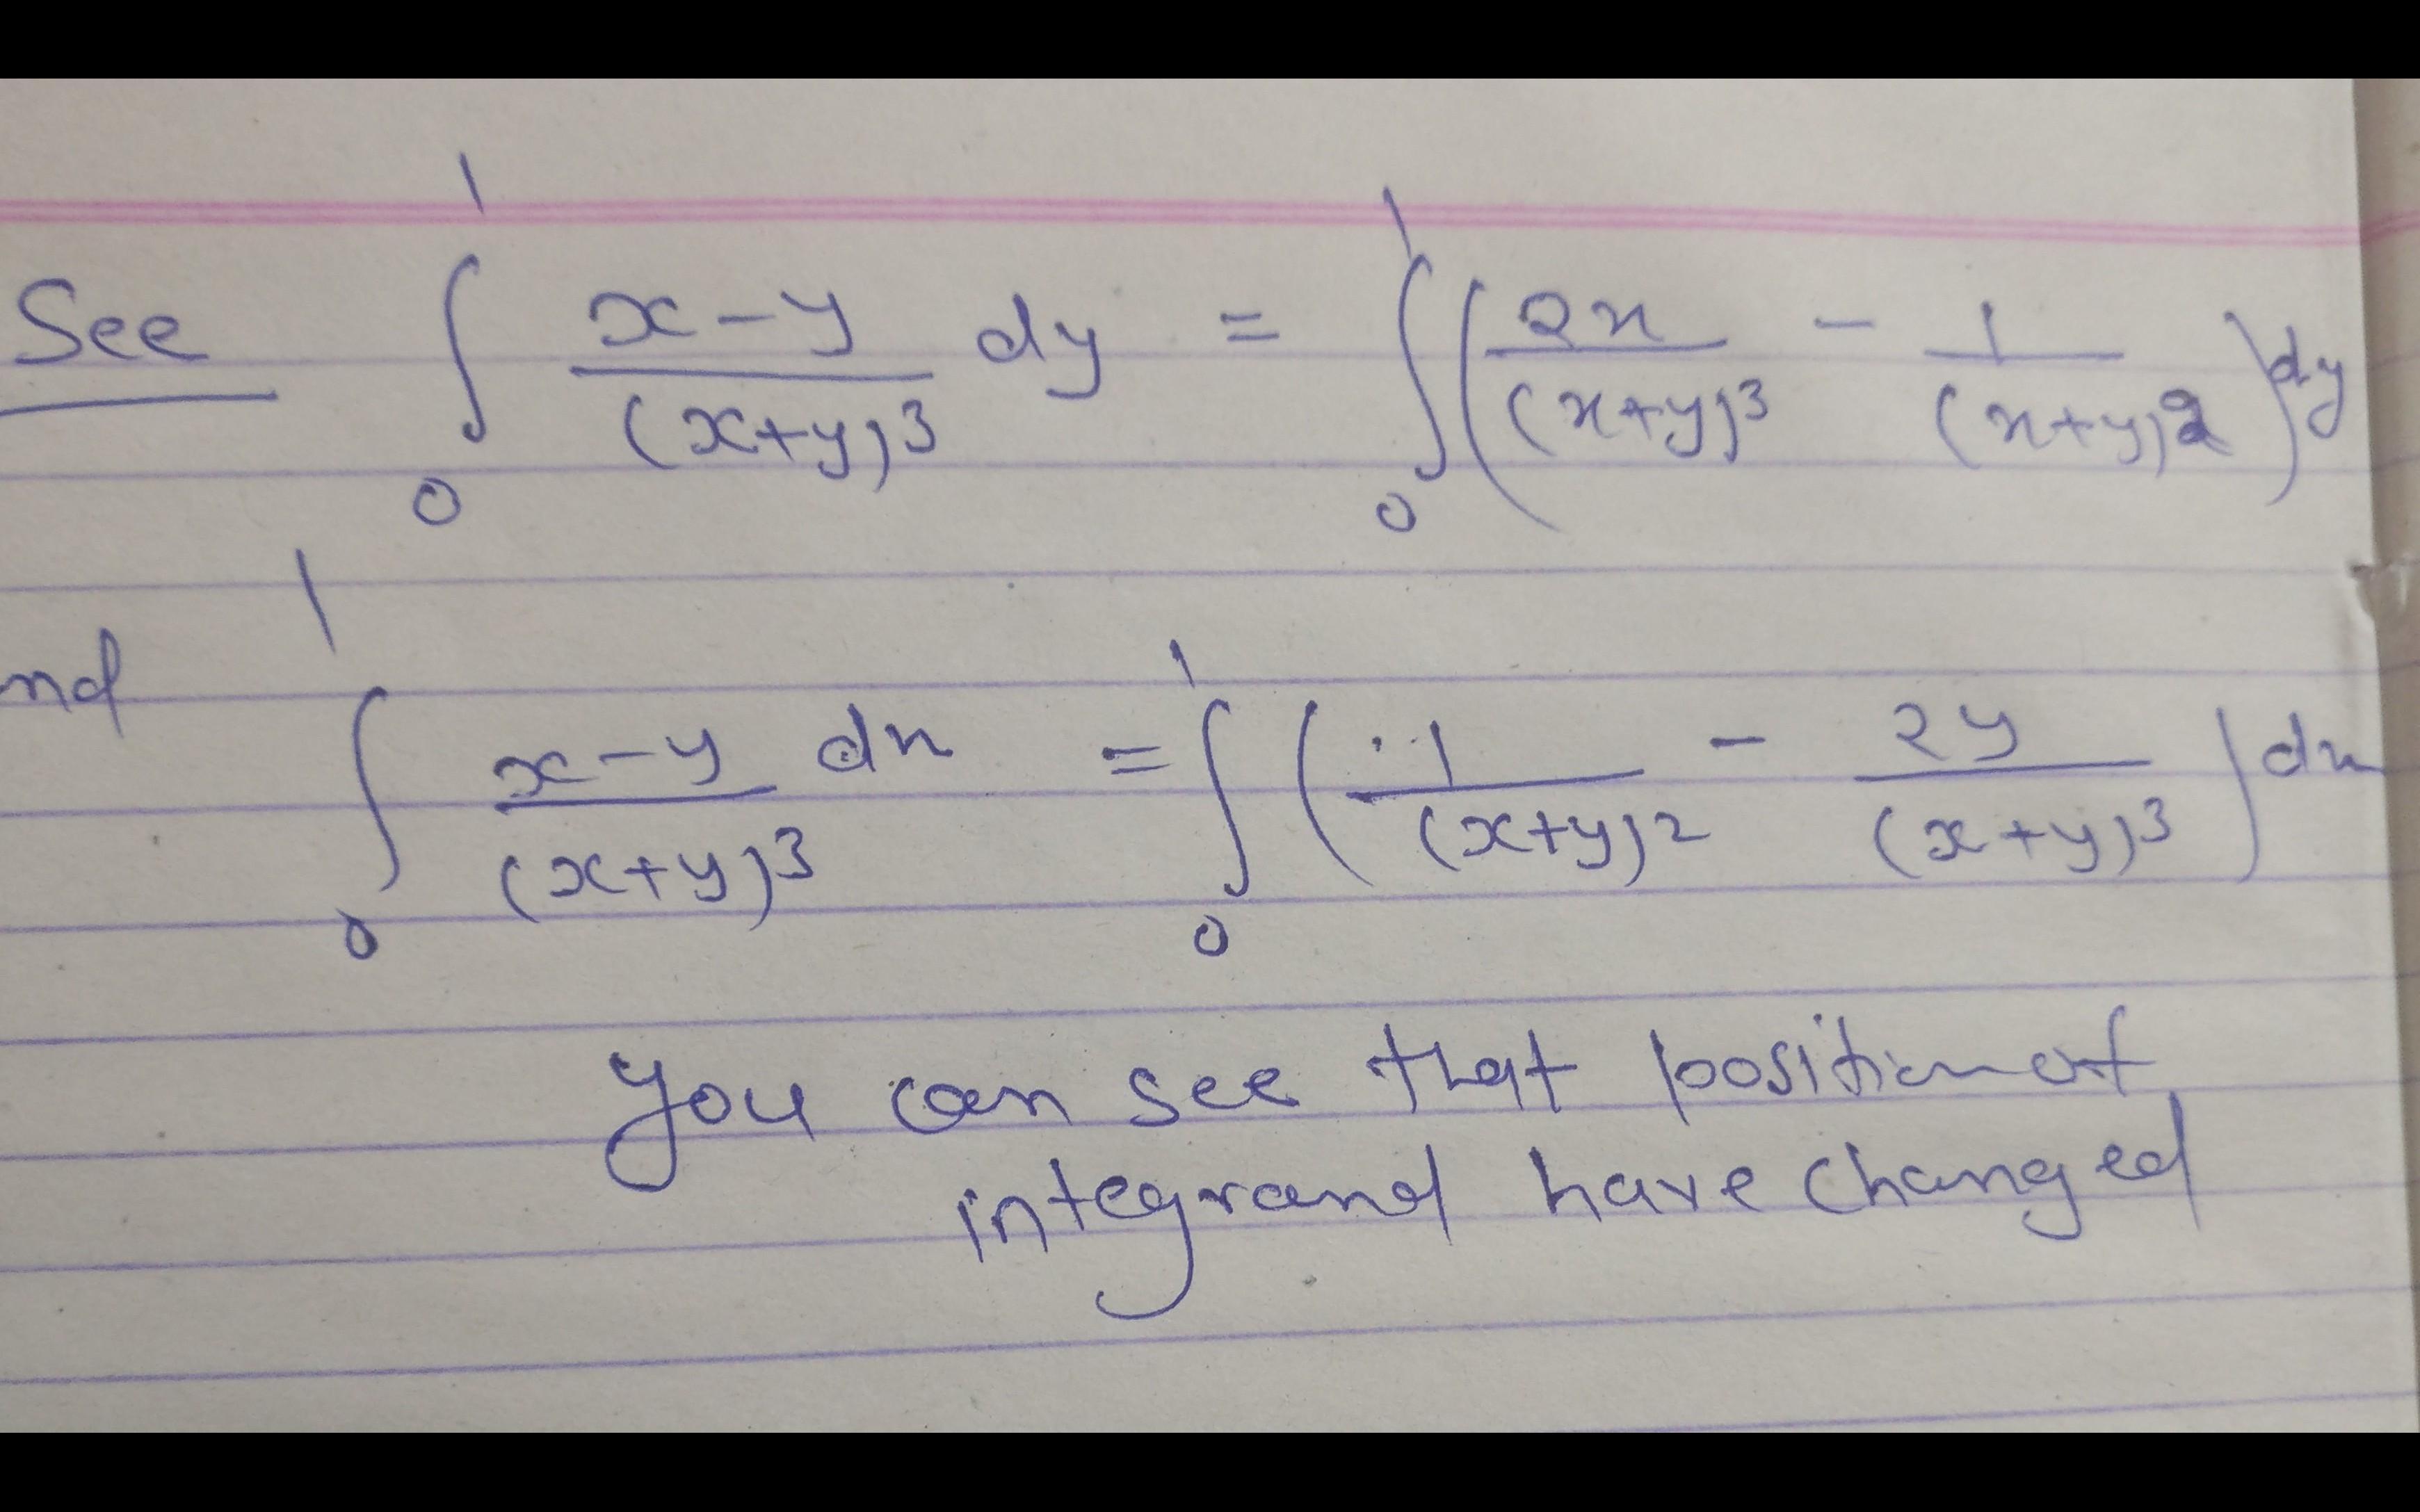 See ∫₀¹ (x-y)/(x+y)³ dy = ∫₀¹ (2x/(x+y)³ - 1/(x+y)²) dy
nd ∫₀¹ (x-y)/(x+y)³ dx = ∫₀¹ (1/(x+y)² - 2y/(x+y)³) dx
You can see that position of
integrand have changed